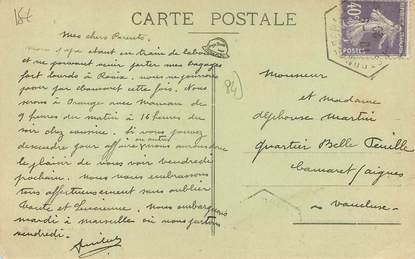 CARTE POSTALE
15t
Mes chers Parents.
Mon papa étant en train de labourer
et ne pouvant venir porter mes bagages
fort lourds à nous ne pourrons
passer par cette fois. Nous
serons à Orange avec Maman de
9 heures du matin à 16 heures du
soir chez cousine. Si vous pouvez
descendre pour affaire nous
le plaisir de vous voir vendredi
prochain. Nous vous embrassons
tous affectueusement sans oublier
Tante et Lucienne. Nous embarquons
mardi à Marseille où nous partons
vendredi.
84)
Monsieur
et madame
Alphonse Martin
quartier Belle Feuille
Camaret/aigues
Vaucluse
40c